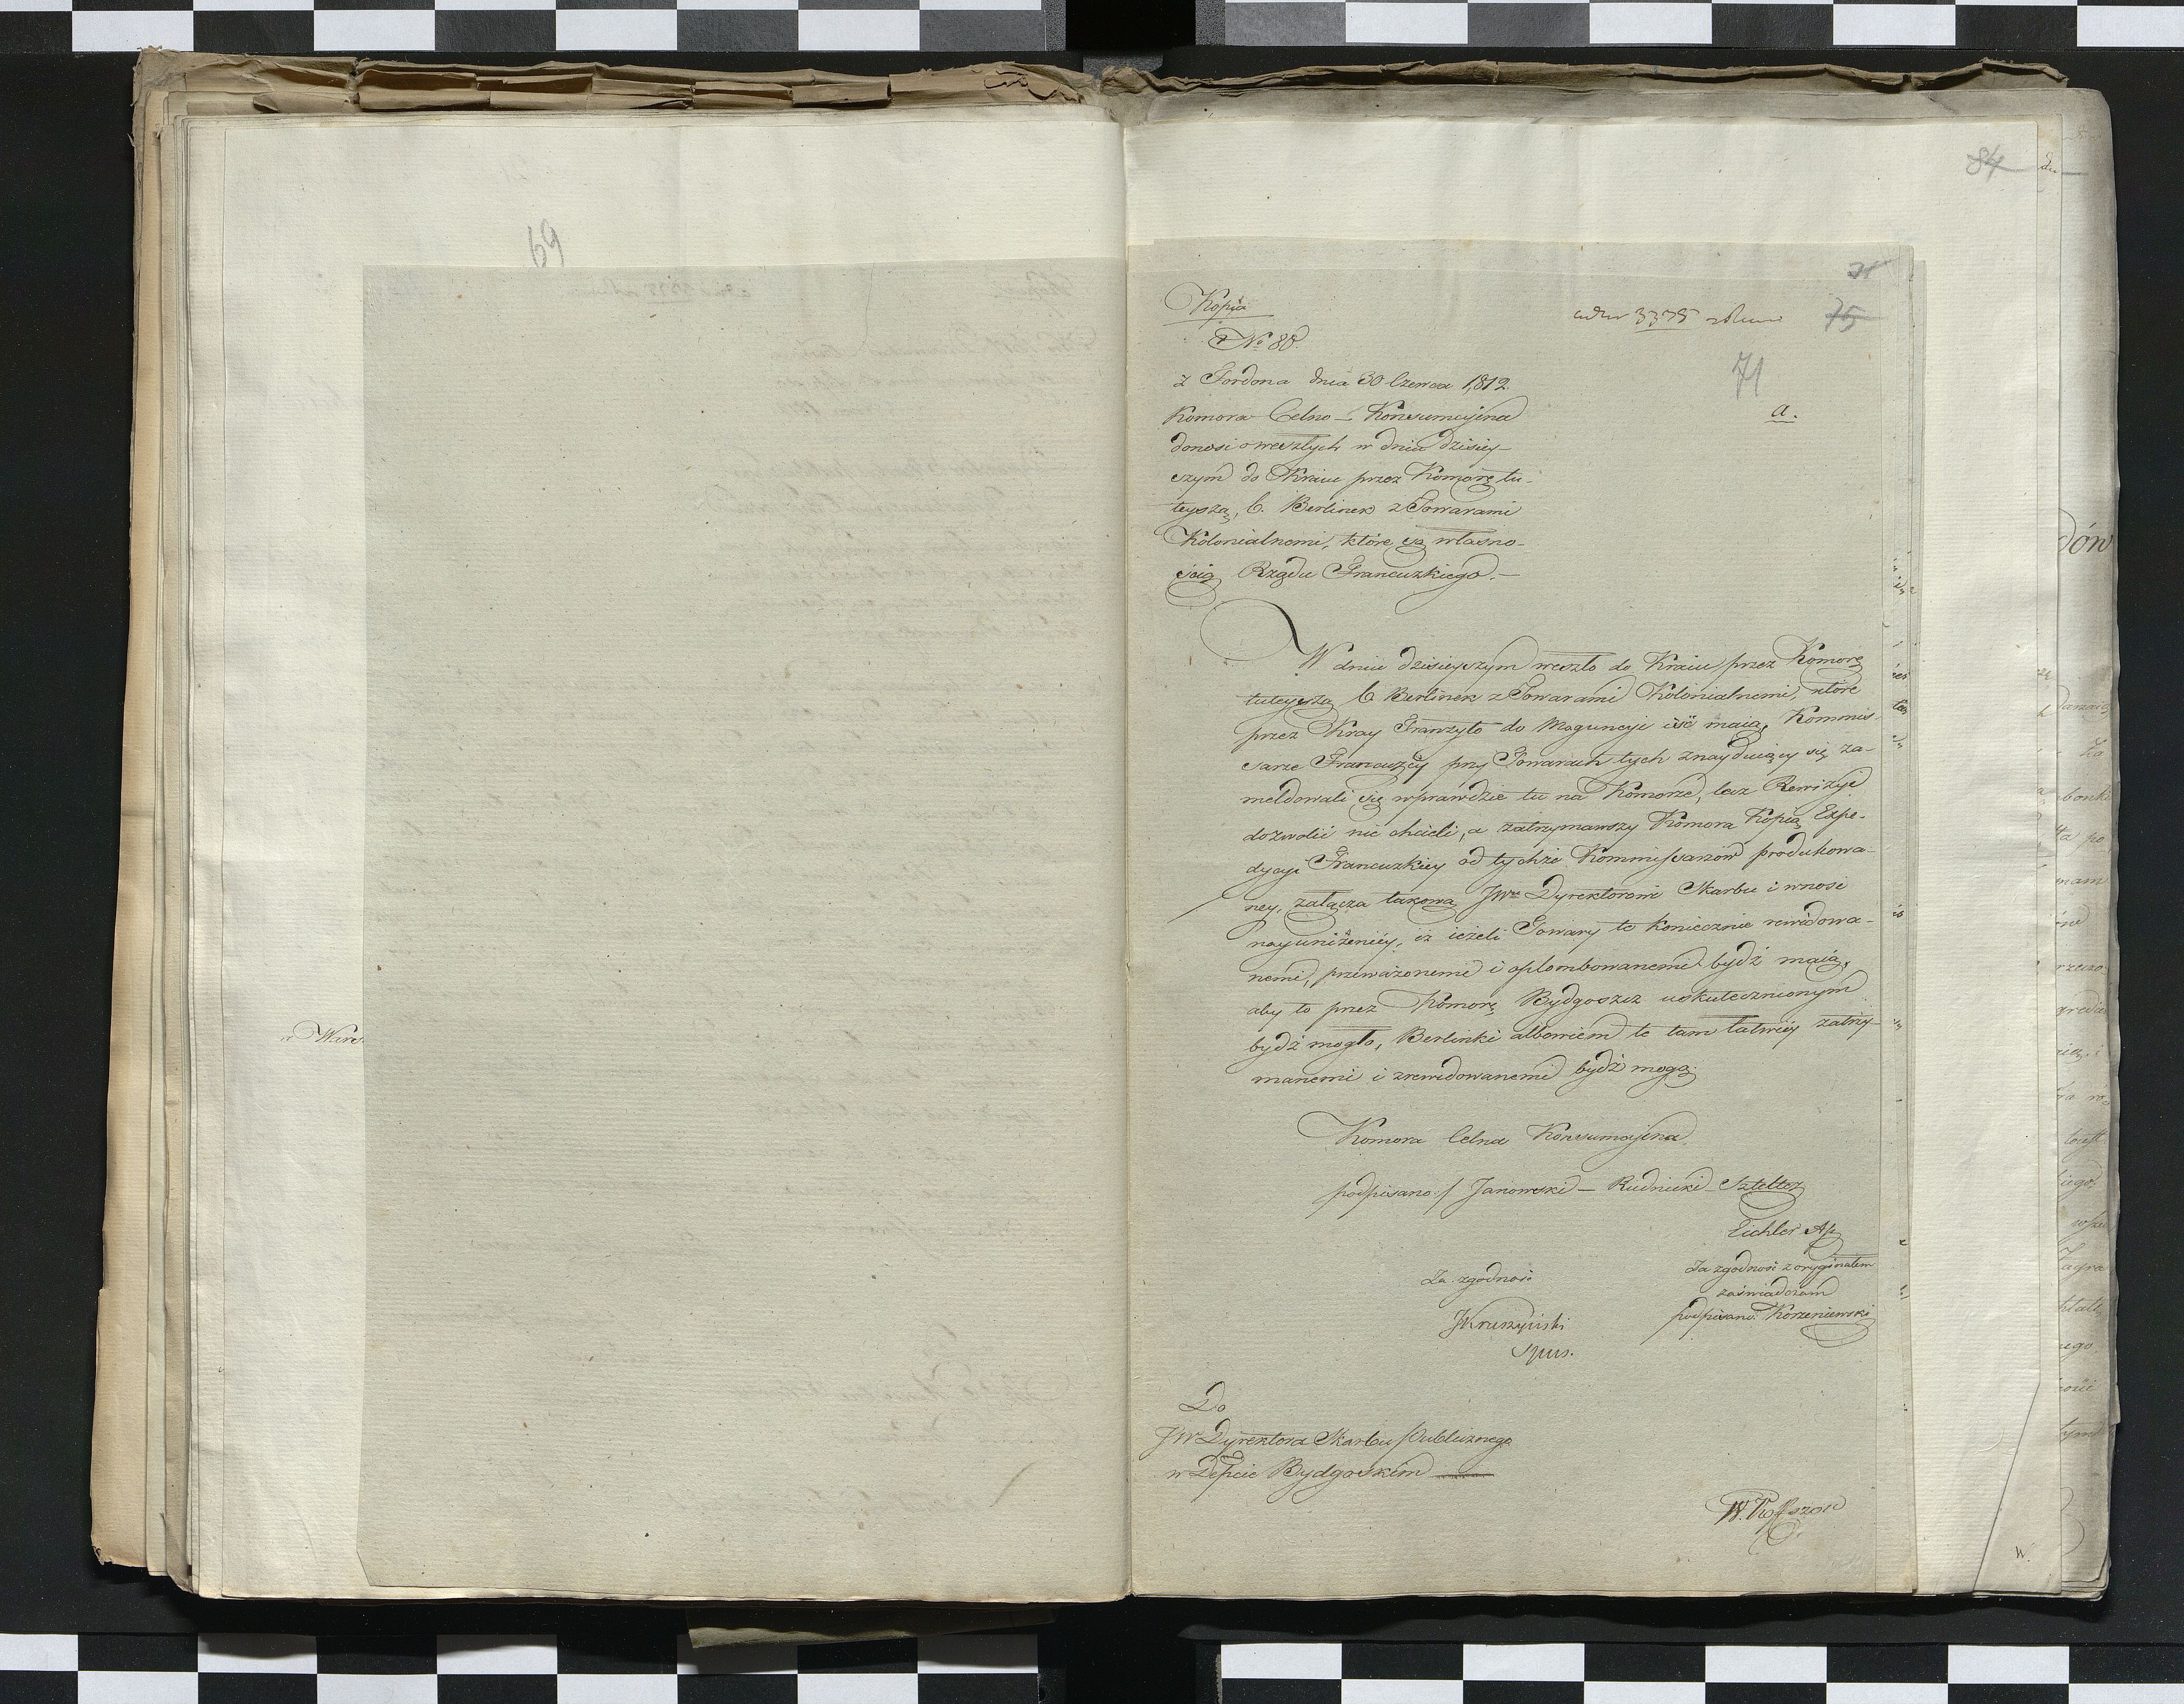 69
84
Kopia
ad Nr 3375
75
No 88.
71
a.
z Fordona dnia 30 Czerwca 1,812.
Komora Celno-Konsumcyina
donosi o weszłych w dniu dzisiey-
szym do Kraiu przez Komorę tu-
teyszą, 6. Berlinek z Towarami
Kolonialnemi, które są własno-
ścią Rządu Francuzkiego.—
W dniu dzisieyszym weszło do Kraiu przez Komorę
tuteyszą 6 Berlinek z Towarami Kolonialnemi, które
przez Kray Tranzyto do Moguncyi iść maią. Kommis-
sarze Francuzcy przy Towarach tych znayduiący się za-
meldowali się wprawdzie tu na Komorze, lecz Rewizyi
dozwolić nie chcieli, a zatrzymawszy Komora Kopią Expe-
dycyi Francuzkiey od tychże Kommissarzów produkowa-
ney, załącza takową JWu Dyrektorowi Skarbu i wnosi
nayuniżeniéy, iż ieżeli Towary te koniecznie rewidowa-
nemi, przeważonemi i oplombowanemi bydź maią,
aby to przez Komorę Bydgoszcz uskutecznionym
bydź mogło, Berlinki albowiem te tam łatwiéy zatrzy-
manemi i zrewidowanemi bydź mogą.
w Wars
Komora Celna Konsumcyina
podpisano / Janowski — Rudnicki Sztelter
Eichler As.
Za zgodność
Za zgodność z oryginałem
zaświadczam
JKruszyński
podpisano Korzeniewski
Spus.
Do
JW Dyrektora Skarbu Publicznego
w Depcie Bydgoskim